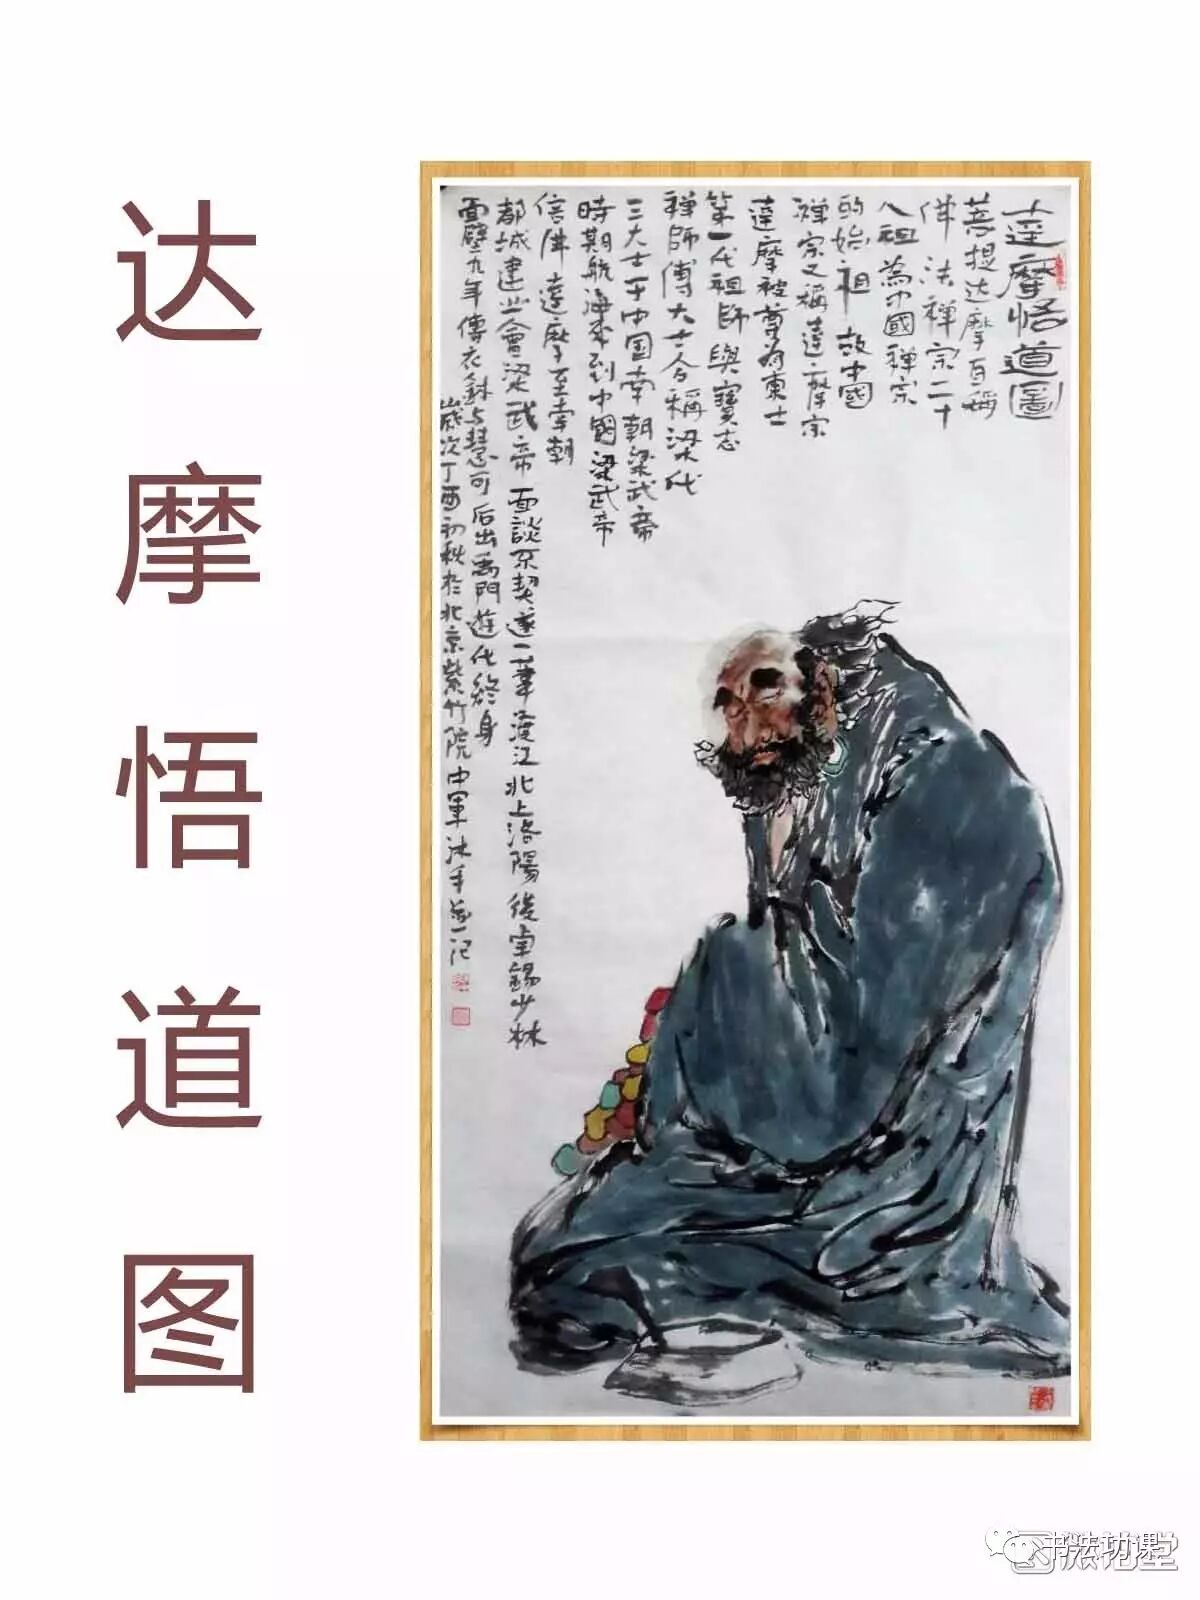 达摩悟道图
達摩悟道圖
菩提达摩亘稱
佛法禅宗二十
八祖為中國禅宗
的始祖故中國
禅宗又稱達摩宗
達摩被尊为東土
第一代祖師與寶志
禅師傅大士合稱梁代
三大士于中国南朝梁武帝
時期航海来到中國梁武帝
信佛達摩至南朝
都城建业會梁武帝面談不契遂一葦渡江北上洛陽後卓錫少林
面壁九年傳衣鉢与慧可后出禹門遊化終身
歲次丁酉初秋於北京紫竹院中軍沐手并記
书法功课